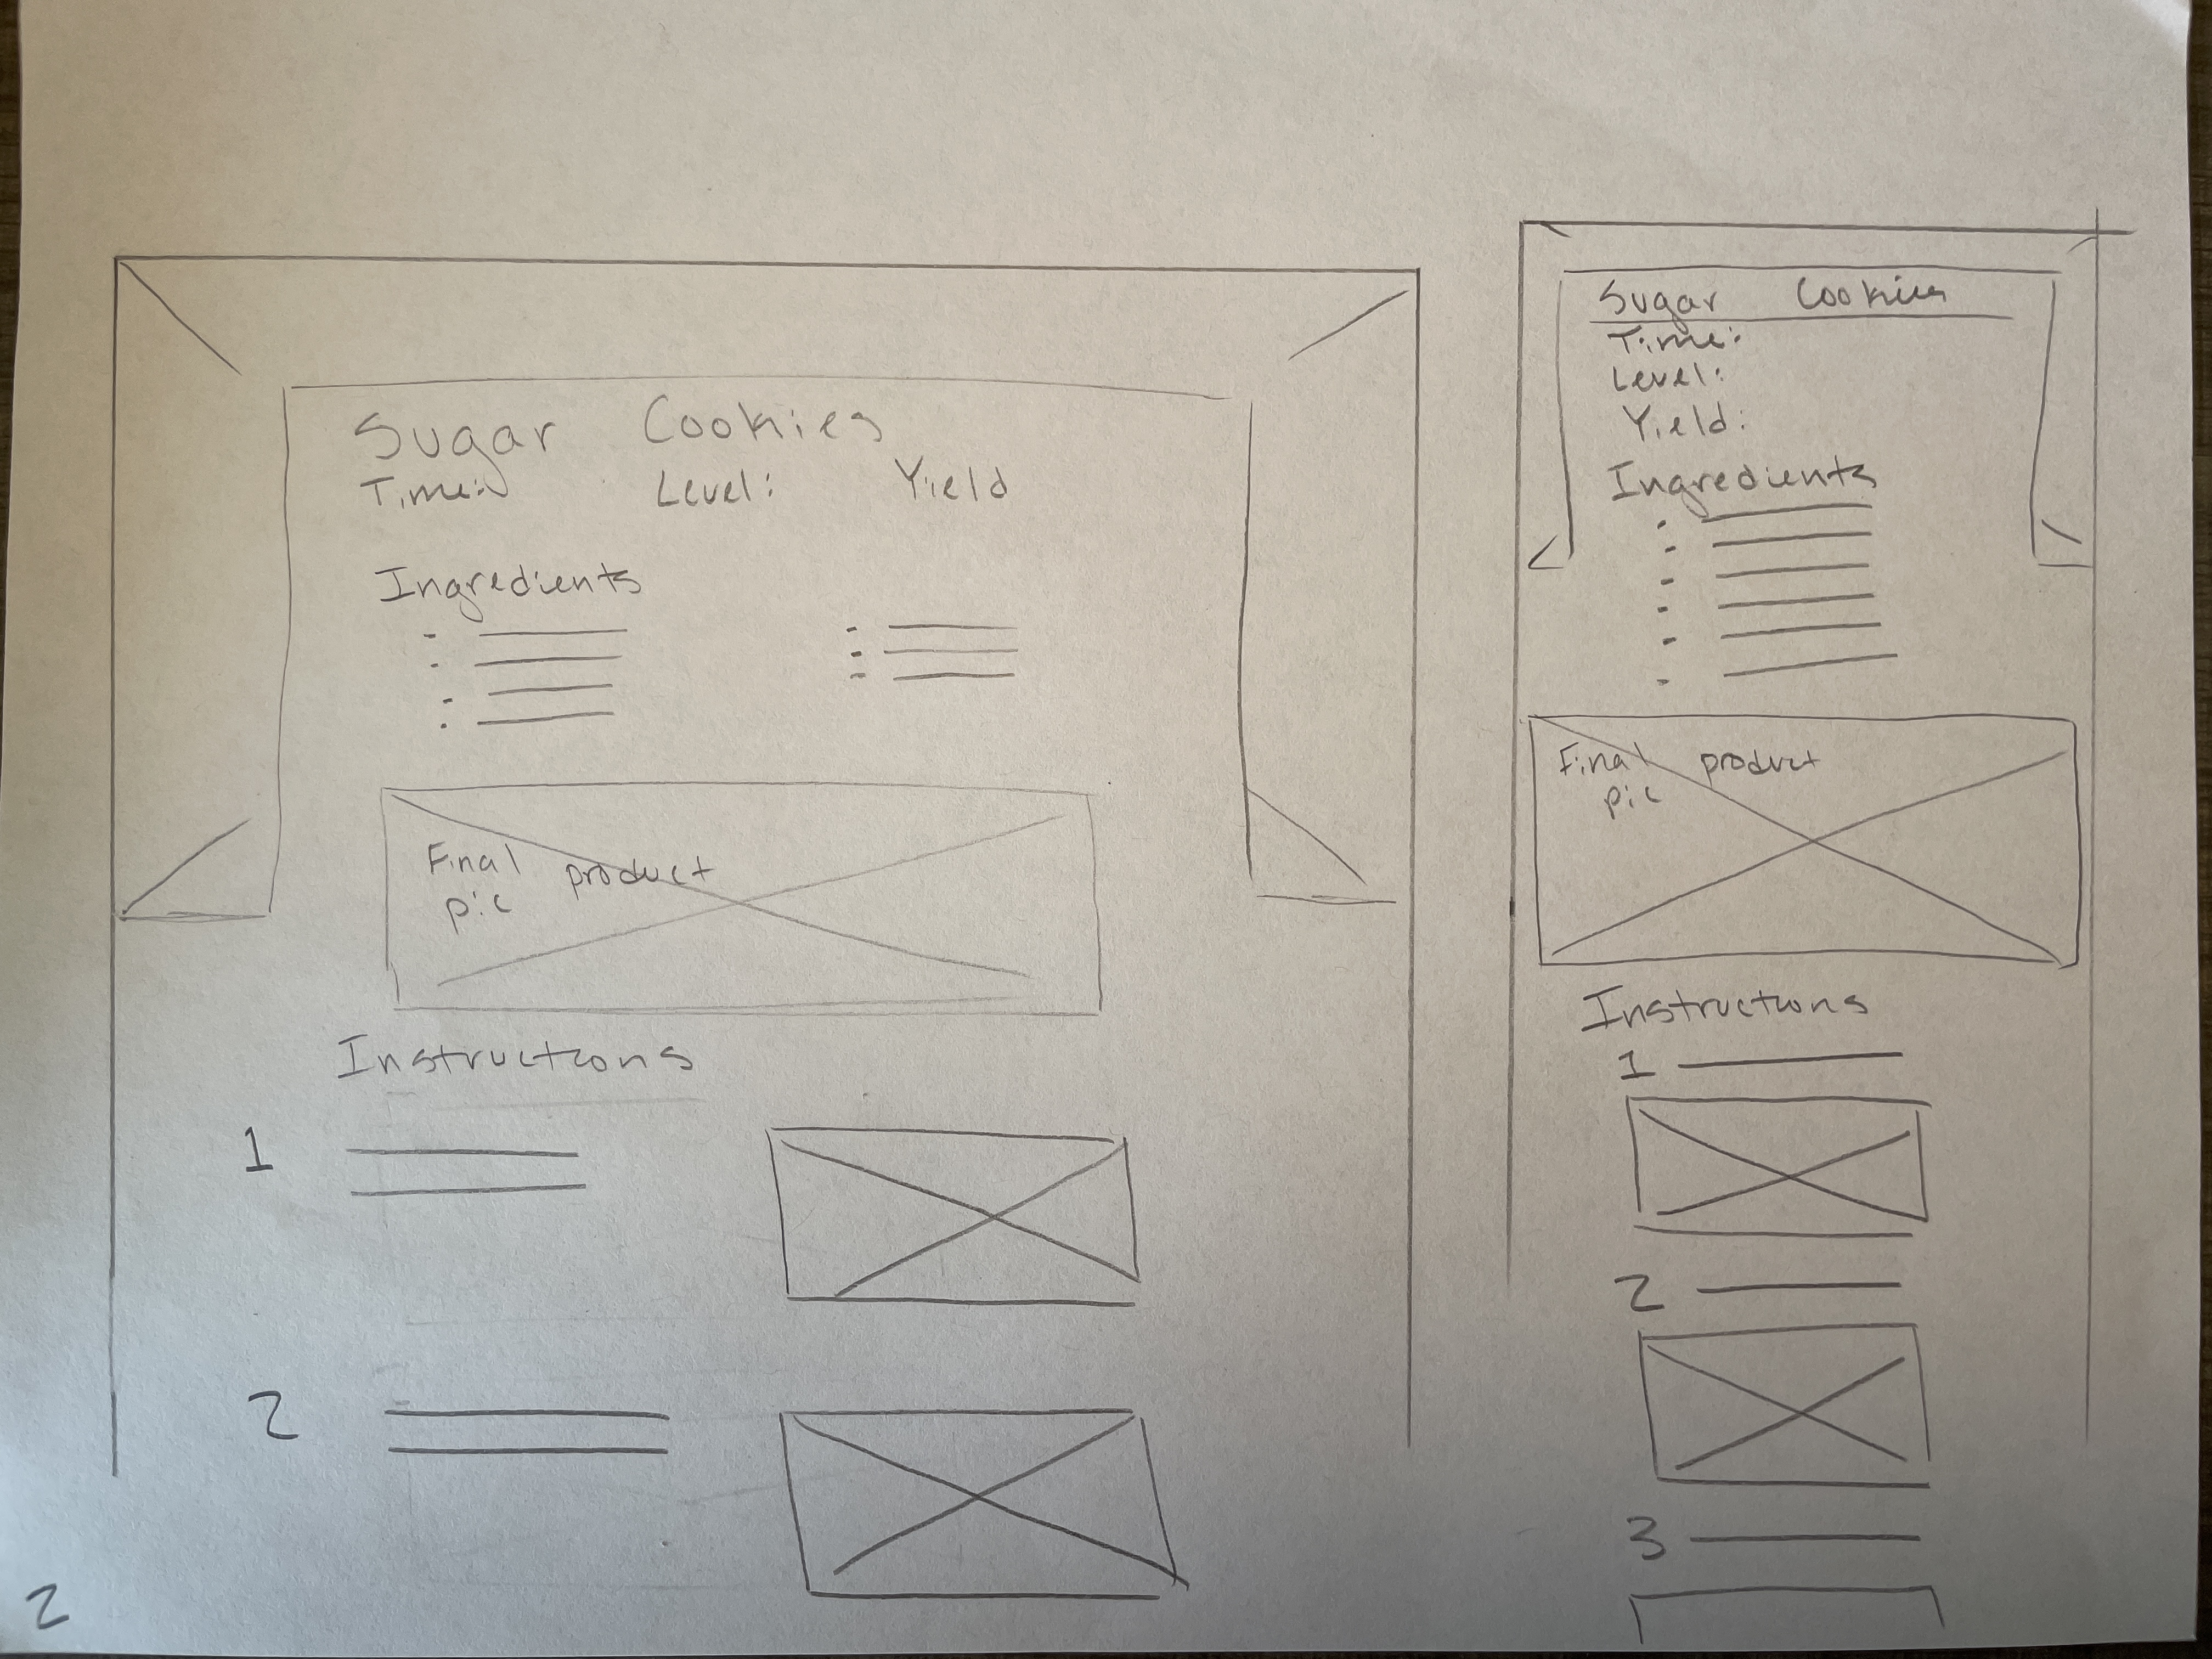 Sugar Cookies
Time: Level: Yield
Ingredients
Final product
pic
Instructions
1
2
2
Sugar Cookies
Time:
Level:
Yield:
Ingredients
Final product
pic
Instructions
1
2
3